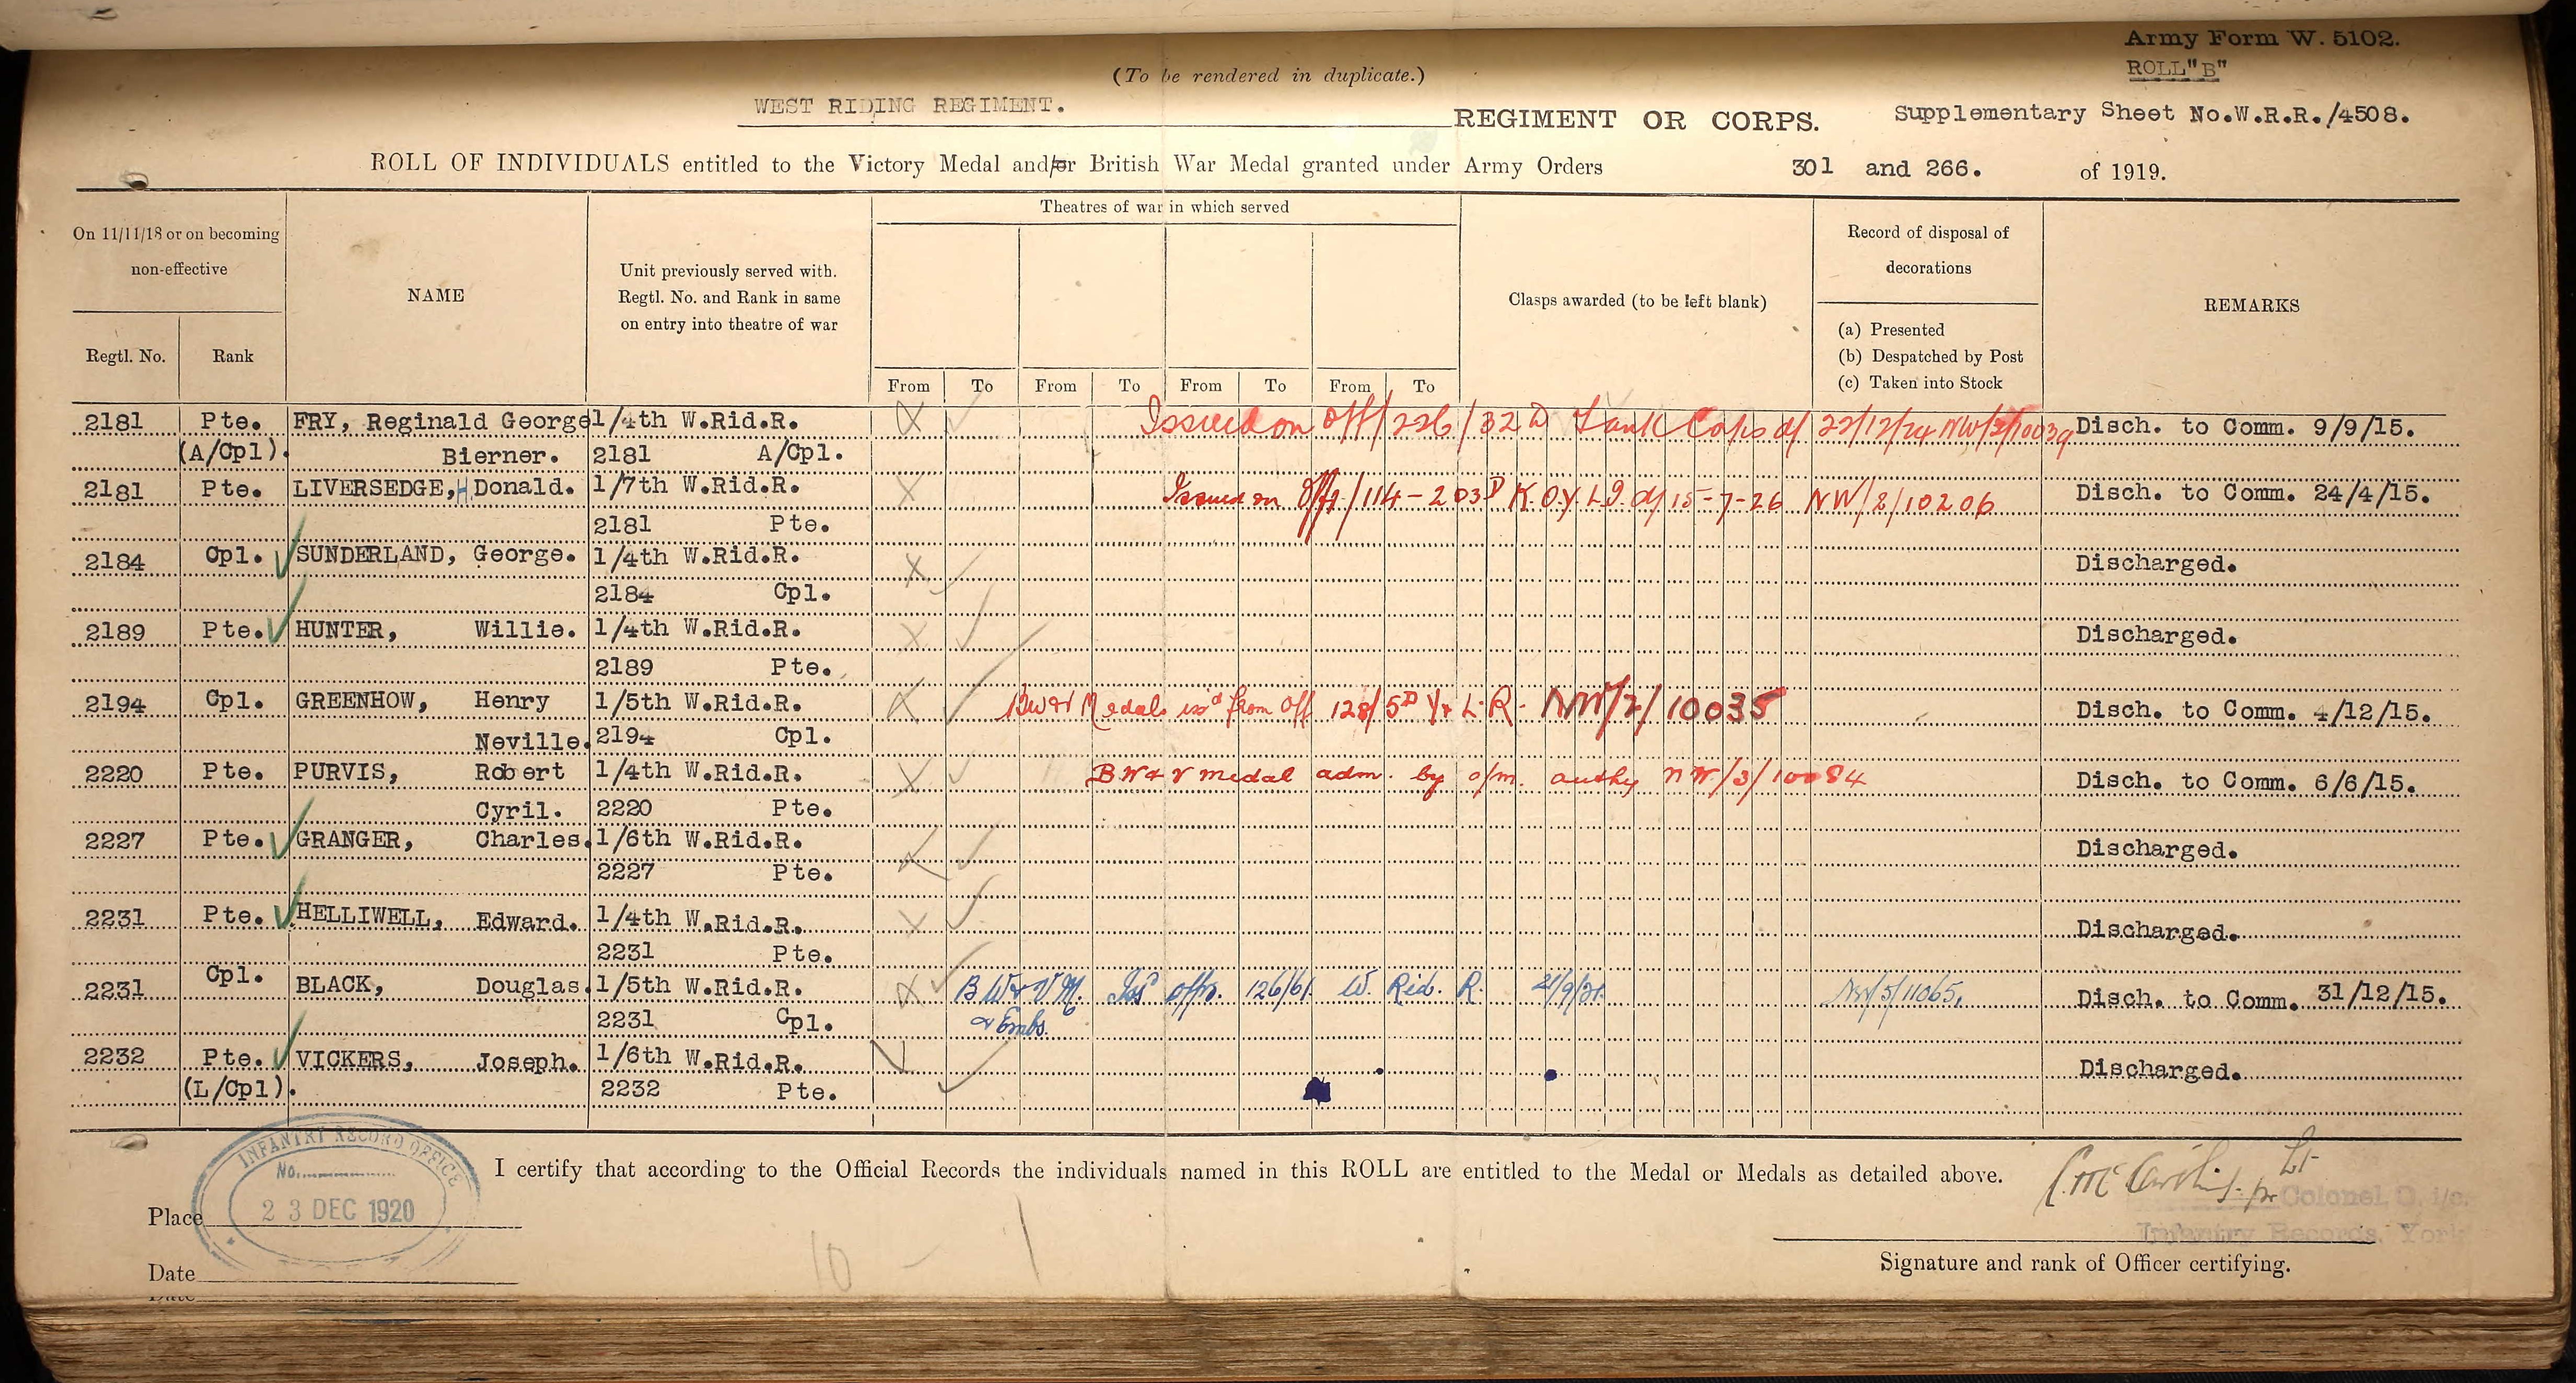 Army Form W. 5102.
ROLL "B"
(To be rendered in duplicate.)
WEST RIDING REGIMENT. REGIMENT OR CORPS. Supplementary Sheet No.W.R.R./4508.
ROLL OF INDIVIDUALS entitled to the Victory Medal and/or British War Medal granted under Army Orders 301 and 266. of 1919.
On 11/11/18 or on becoming non-effective
Regtl. No.
Rank
NAME
Unit previously served with. Regtl. No. and Rank in same on entry into theatre of war
Theatres of war in which served
From To From To From To From To
Clasps awarded (to be left blank)
Record of disposal of decorations
(a) Presented
(b) Despatched by Post
(c) Taken into Stock
REMARKS
2181 Pte. FRY, Reginald George 1/4th W.Rid.R. Issued on Off/226/32 D Tank Corps d/ 22/12/24 NW/2/10039 Disch. to Comm. 9/9/15.
(A/Cpl). Bierner. 2181 A/Cpl.
2181 Pte. LIVERSEDGE, H Donald. 1/7th W.Rid.R. Issued on Off/114-203D K.O.Y.L.I. d/ 15-7-26 NW/8/10206 Disch. to Comm. 24/4/15.
2181 Pte.
2184 Cpl. SUNDERLAND, George. 1/4th W.Rid.R. Discharged.
2184 Cpl.
2189 Pte. HUNTER, Willie. 1/4th W.Rid.R. Discharged.
2189 Pte.
2194 Cpl. GREENHOW, Henry 1/5th W.Rid.R. BW&V Medals iss'd from Off 128/5D Y & L.R. NW/7/10035 Disch. to Comm. 4/12/15.
Neville. 2194 Cpl.
2220 Pte. PURVIS, Robert 1/4th W.Rid.R. BW & V medal adm. by o/m. authy NW/3/10084 Disch. to Comm. 6/6/15.
Cyril. 2220 Pte.
2227 Pte. GRANGER, Charles. 1/6th W.Rid.R. Discharged.
2227 Pte.
2231 Pte. HELLIWELL, Edward. 1/4th W.Rid.R. Discharged.
2231 Pte.
2231 Cpl. BLACK, Douglas. 1/5th W.Rid.R. B W & V M. Issd offrs. 126/61 W. Rid. R. 21/9/21. NW/5/11065. Disch. to Comm. 31/12/15.
2231 Cpl. & Embs.
2232 Pte. VICKERS, Joseph. 1/6th W.Rid.R. Discharged.
(L/Cpl). 2232 Pte.
I certify that according to the Official Records the individuals named in this ROLL are entitled to the Medal or Medals as detailed above.
Lt
for Colonel. O. i/c.
Infantry Records, York
INFANTRY RECORD OFFICE
No.
23 DEC 1920
Place
Date
10 - 1
Signature and rank of Officer certifying.